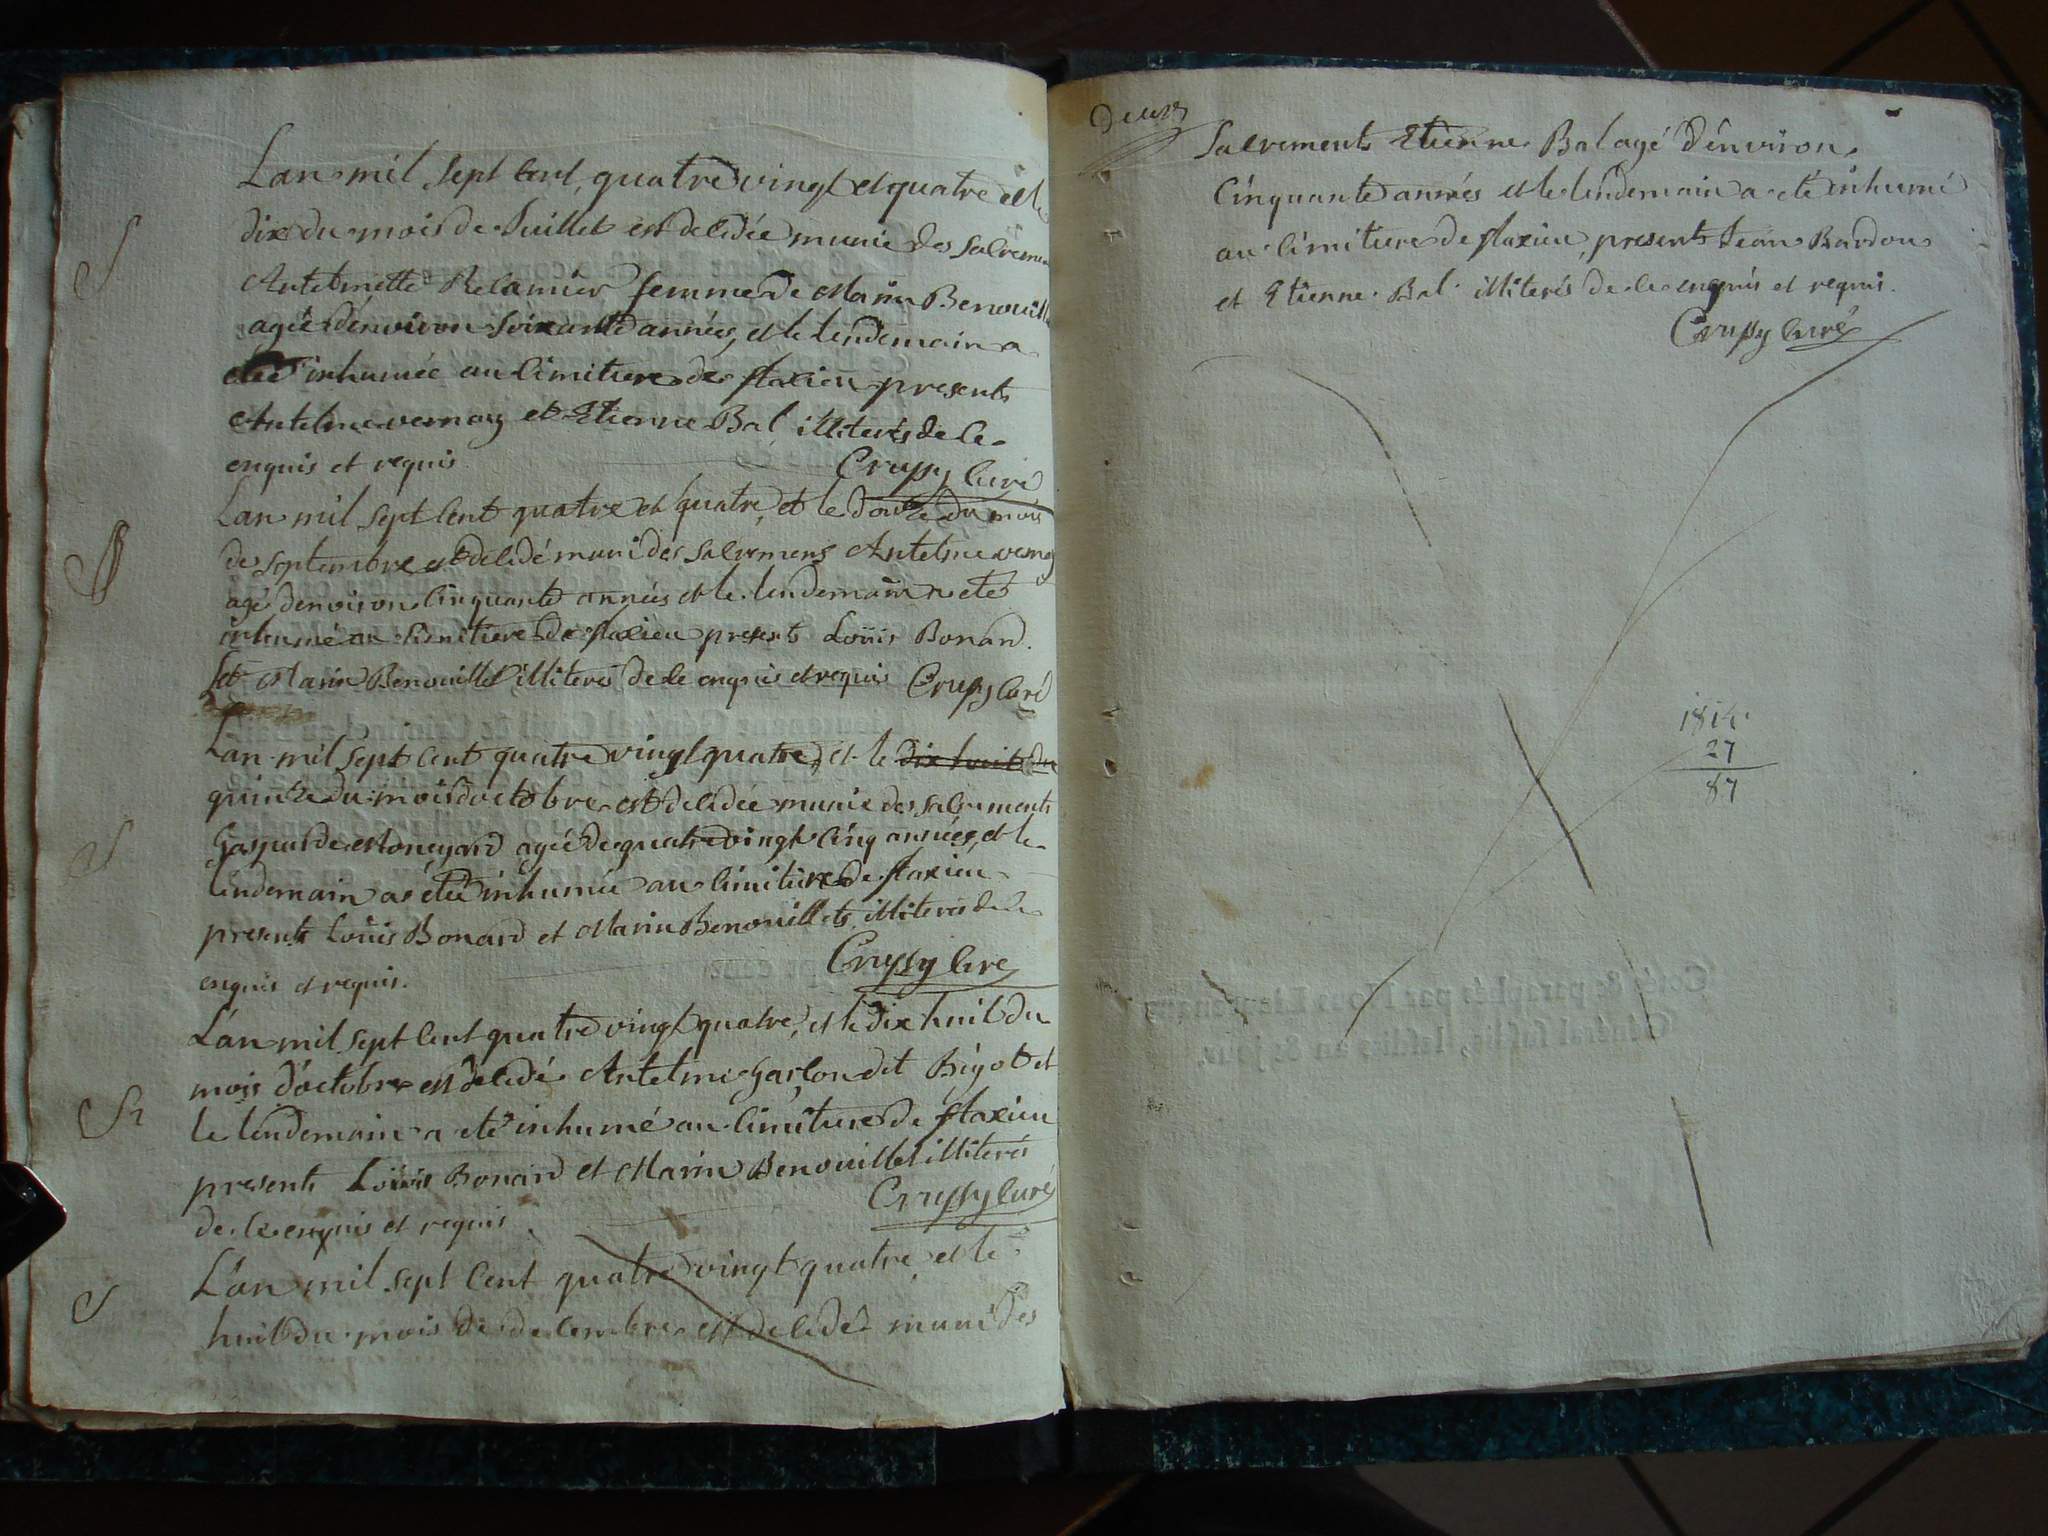 Lan mil sept cent quatre vingt et quatre et le
dix du mois de Juillet est decedée munie des sacremen
Antelmette femme de Marin Benouillet
agée denviron soixante années, et le lendemain a
etée inhumée au cimitiere de flaxieu presents
Antelme vernay et Etienne Bal illiterés de ce
enquis et requis. Crussy curé
Lan mil sept cent quatre et quatre, et le douze du mois
de septembre est decedé muni des sacremens Antelme vernay
agé denviron cinquante années et le lendemain a eté
inhumé au cimitiere de flaxieu presents Loüis Bonard.
et Marin Benouillet illiteres de ce enquis et requis Crussy curé
Lan mil sept cent quatre vingt quatre, et le dix huit du
quinze du mois doctobre est decedée munie des sacrements
Gasparde Moneyard agée de quatre vingt cinq années, et le
lendemain a étée inhumée au cimitiere de flaxieu
presents Loüis Bonard et Marin Benouillet illiterés de ce
enquis et requis. Crussy cure
L'an mil sept cent quatre vingt quatre, et le dix huit du
mois d'octobre est decedé Antelme garçon dit Bigot et
le lendemain a eté inhumé au cimitiere de flaxieu
presents Loüis Bonard et Marin Benouillet illiterés
de ce enquis et requis. Crussy curé
L'an mil sept cent quatre vingt quatre, et le
huit du mois de decembre est decedé muni des
Deux
sacrements Etienne Bal agé d'environ
cinquante années et le lendemain a eté inhumé
au cimitiere de flaxieu, presents Jean Bardon
et Etienne Bal illiterés de ce enquis et requis.
Crussy curé
27
87
Coté & paraphé par Nous Lieutenant
Général susdit, lesdits an & jour.